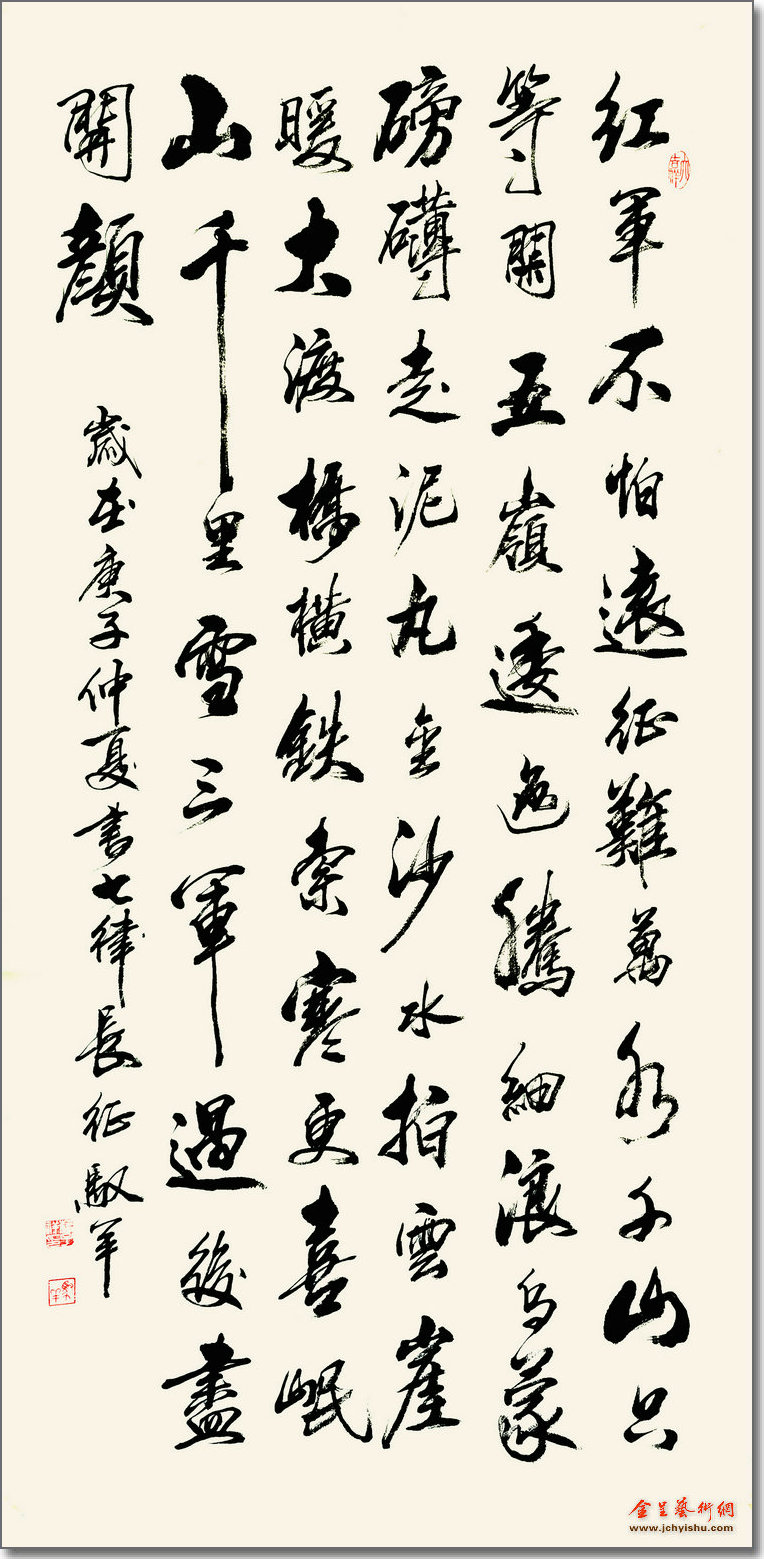 紅軍不怕遠征難萬水千山只
等閑五嶺逶迤騰細浪烏蒙
磅礴走泥丸金沙水拍雲崖
暖大渡橋橫鉄索寒更喜岷
山千里雪三軍過後盡
開顏
歲在庚子仲夏書七律長征馭羊
金呈藝術網
www.jchyishu.com